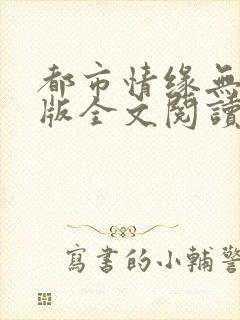 都市情缘無
版全文閱讀
寫書的小輔警